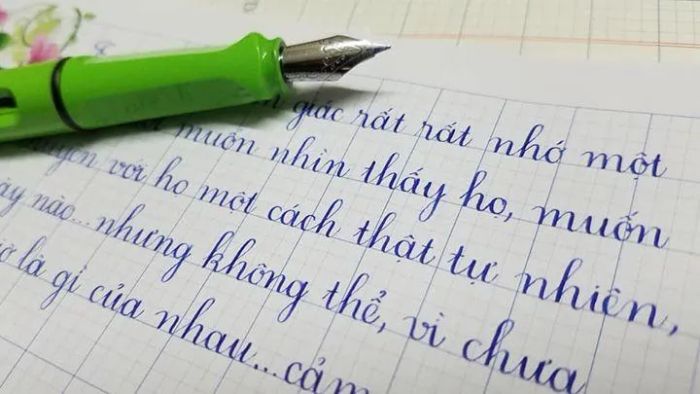 giác rất rất nhớ một
muốn nhìn thấy họ, muốn
với họ một cách thật tự nhiên,
nào... nhưng không thể, vì chưa
là gì của nhau...cảm